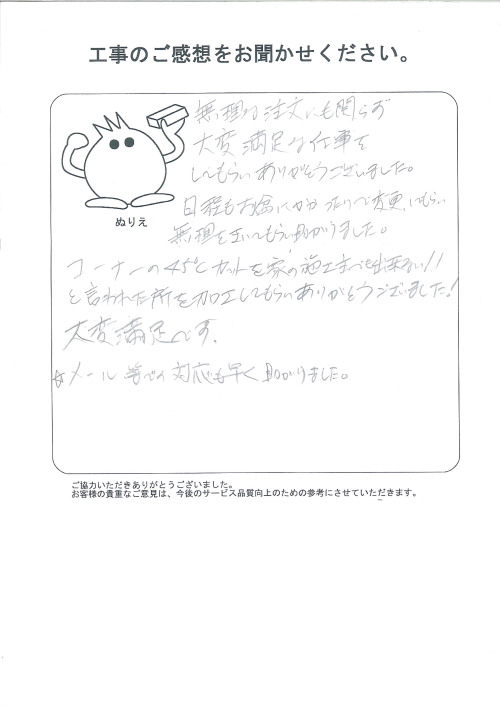 工事のご感想をお聞かせください。
無理な注文にも関らず
大変満足な仕事を
してもらいありがとうございました。
ぬりえ
日程もお盆にかかったりで変更してもらい
無理を言いてもらい助かりました。
コーナーの45℃カットを家の施工までも出来ない!!
と言われた所を加工してもらいありがとうございました!
大変満足です.
☆メール等での対応も早く助かりました。
ご協力いただきありがとうございました。
お客様の貴重なご意見は、今後のサービス品質向上のための参考にさせていただきます。